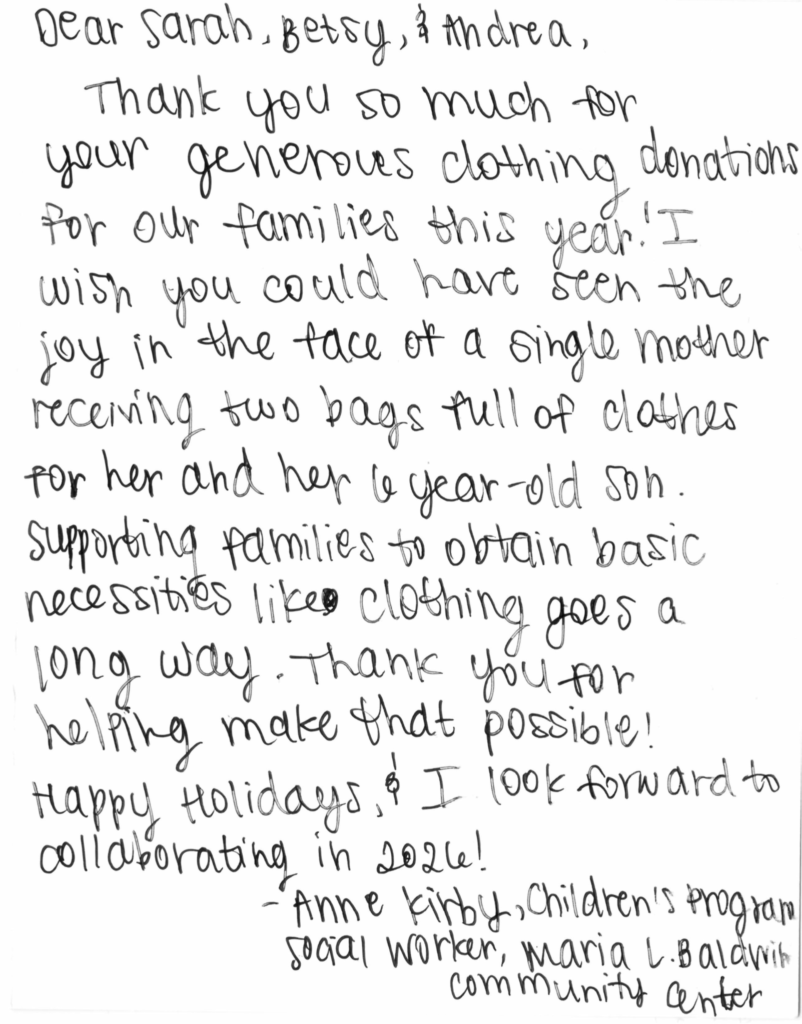 Dear Sarah, Betsy, & Andrea,
Thank you so much for
your generous clothing donations
for our families this year! I
wish you could have seen the
joy in the face of a single mother
receiving two bags full of clothes
for her and her 6 year-old son.
Supporting families to obtain basic
necessities like clothing goes a
long way. Thank you for
helping make that possible!
Happy Holidays, & I look forward to
collaborating in 2026!
- Anne Kirby, Children's Program
Social Worker, Maria L. Baldwin
Community Center